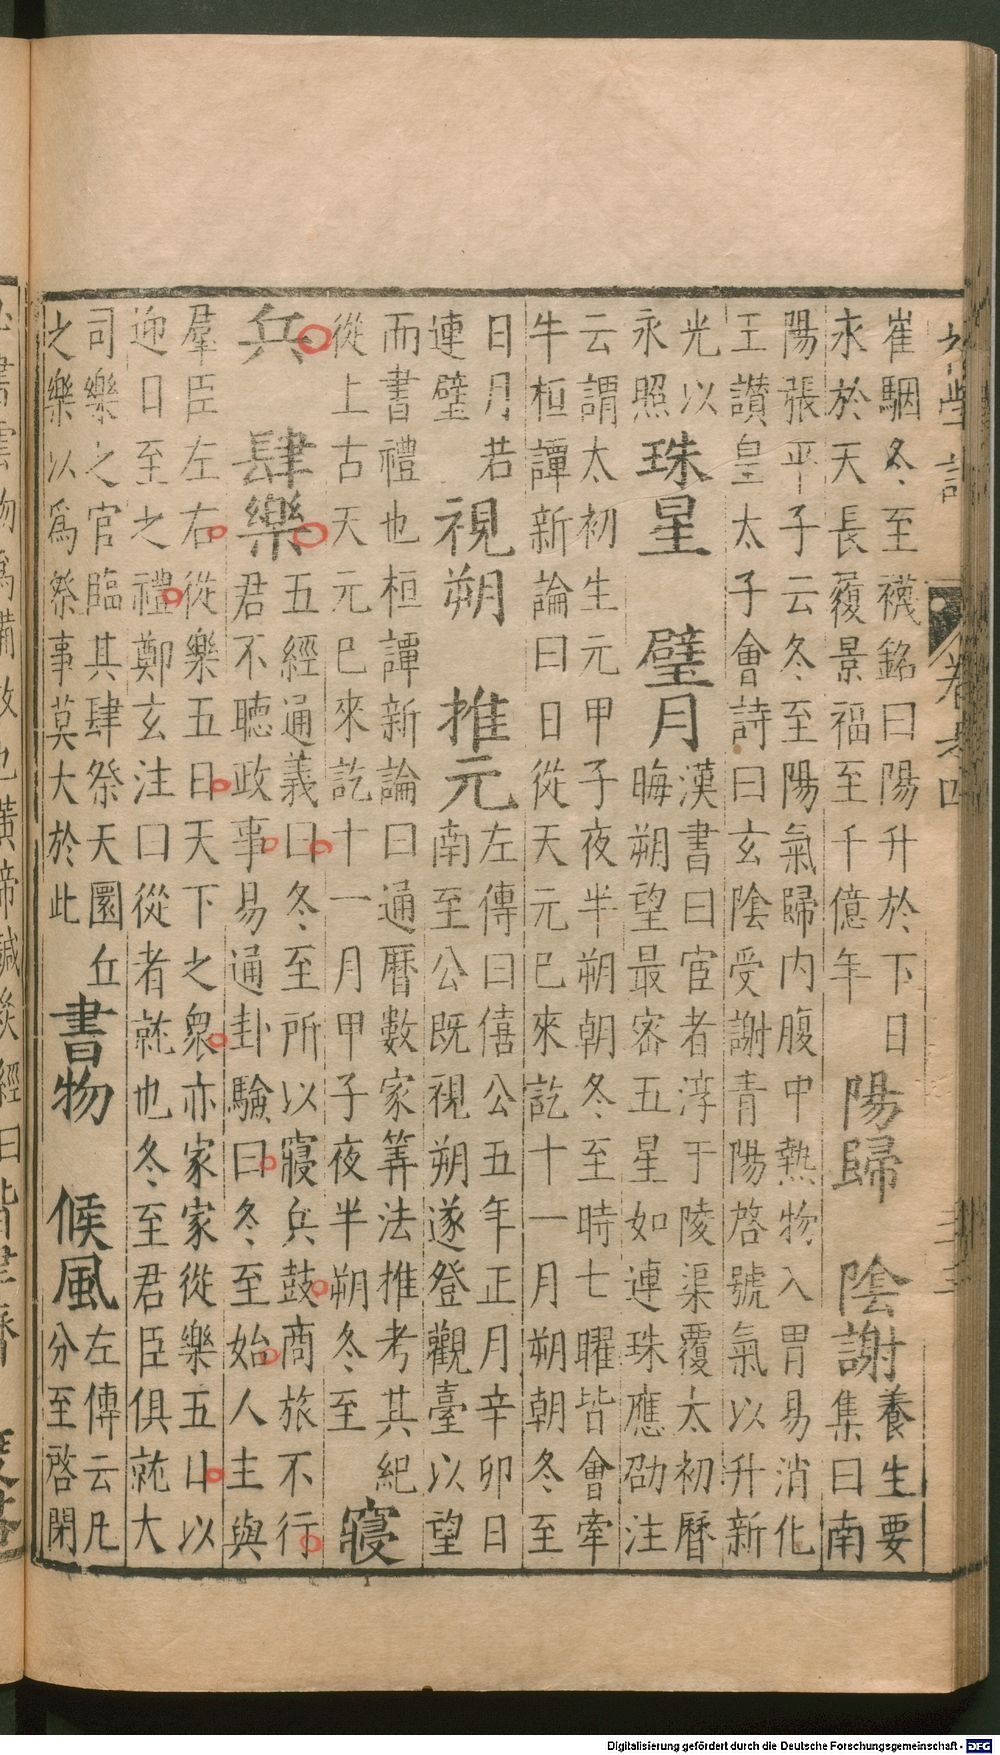 學記
卷之四
崔駰冬至襪銘曰陽升於下日
永於天長履景福至千億年
陽歸　陰謝
養生要
集曰南
陽張平子云冬至陽氣歸内腹中熱物入胃易消化
王讚皇太子會詩曰玄陰受謝青陽啓號氣以升新
光以
永照
珠星　璧月
漢書曰宦者淳于陵渠覆太初曆
晦朔望最密五星如連珠應劭注
云謂太初生元甲子夜半朔朝冬至時七曜皆會牽
牛桓譚新論曰日從天元已來訖十一月朔朝冬至
日月若
連璧
視朔　推元
左傳曰僖公五年正月辛卯日
南至公既視朔遂登觀臺以望
而書禮也桓譚新論曰通曆數家筭法推考其紀
從上古天元已來訖十一月甲子夜半朔冬至
寢
兵　肆樂
五經通義曰冬至所以寢兵鼓商旅不行
君不聽政事易通卦驗曰冬至始人主與
羣臣左右從樂五日天下之衆亦家家從樂五日以
迎日至之禮鄭玄注曰從者就也冬至君臣俱就大
司樂之官臨其肆祭天圜丘
之樂以爲祭事莫大於此
書物　候風
左傳云凡
分至啓閉
Digitalisierung gefördert durch die Deutsche Forschungsgemeinschaft - DFG